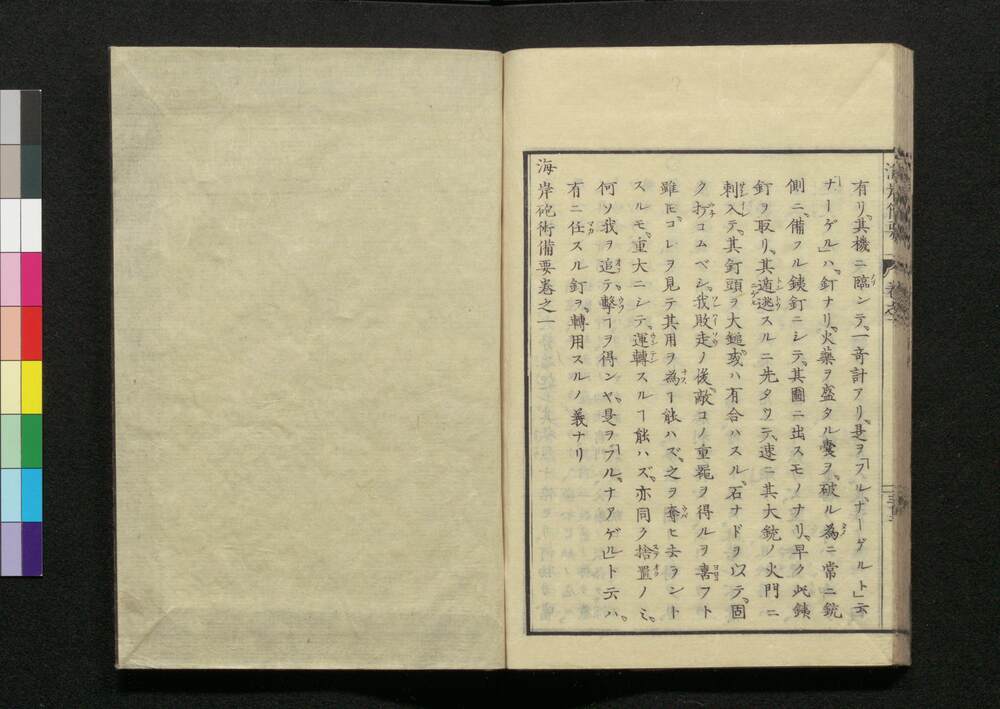 有リ、其機ニ臨ンデ、一奇計アリ、是ヲ「フル、ナーゲルト」云
「ナーゲル」ハ、釘ナリ、火藥ヲ盛タル嚢ヲ、破ル為ニ常ニ銃
側ニ、備フル鉄釘ニシテ、其圖ニ出スモノナリ、早ク此鉄
釘ヲ取リ、其遁逃スルニ先タツテ、速ニ其大銃ノ火門ニ
刺入テ、其釘頭ヲ大鎚、或ハ有合ハスル、石ナドヲ以テ、固
ク打コムベシ、我敗走ノ後、敵コノ重器ヲ得ルヲ喜フト
雖ヒ、コレヲ見テ其用ヲ為ヿ能ハズ、之ヲ奪ヒ去ラント
スルモ、重大ニシテ、運轉スルヿ能ハズ、亦同ク捨置ノミ、
何ソ我ヲ追テ、擊ヿヲ得ンヤ、是ヲ「フル、ナアゲル」ト云ハ、
有ニ任スル釘ヲ、轉用スルノ義ナリ
海岸砲術備要巻之一